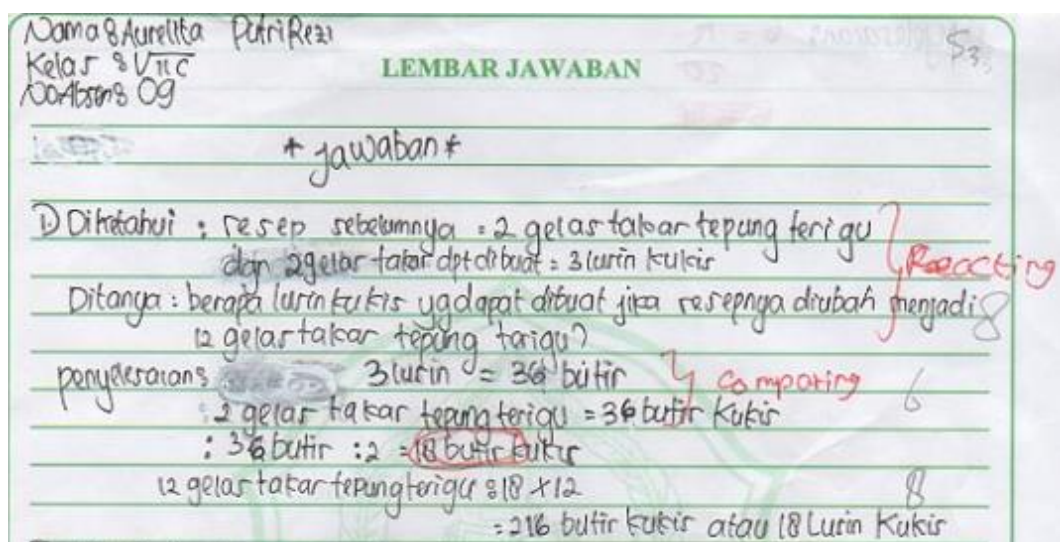 Nama : Aurellta Putri Rezi
Kelas : VII C
No Absen : 09
S3
LEMBAR JAWABAN
* Jawaban *
1) Diketahui : resep sebelumnya = 2 gelas takar tepung terigu
dan 2 gelas takar dpt dibuat = 3 lusin kukis
Reaccting
Ditanya : berapa lusin kukis yg dapat dibuat jika resepnya diubah menjadi 8
12 gelas takar tepung terigu?
penyelesaian : 3 lusin = 36 butir
Comparing 6
: 2 gelas takar tepung terigu = 36 butir kukis
: 36 butir : 2 = 18 butir kukis
12 gelas takar tepung terigu : 18 x 12 8
= 216 butir kukis atau 18 Lusin Kukis